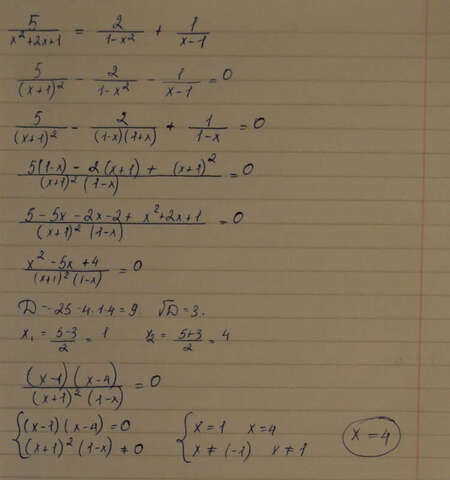 5/(x²+2x+1) = 2/(1-x²) + 1/(x-1)
5/(x+1)² - 2/(1-x²) - 1/(x-1) = 0
5/(x+1)² - 2/((1-x)(1+x)) + 1/(1-x) = 0
(5(1-x) - 2(x+1) + (x+1)²)/((x+1)²(1-x)) = 0
(5-5x-2x-2+x²+2x+1)/((x+1)²(1-x)) = 0
(x²-5x+4)/((x+1)²(1-x)) = 0
D = 25-4·1·4 = 9 √D = 3.
x₁ = (5-3)/2 = 1 x₂ = (5+3)/2 = 4
((x-1)(x-4))/((x+1)²(1-x)) = 0
{(x-1)(x-4) = 0 {x=1 x=4
(x+1)²(1-x) ≠ 0 x≠(-1) x≠1 x=4